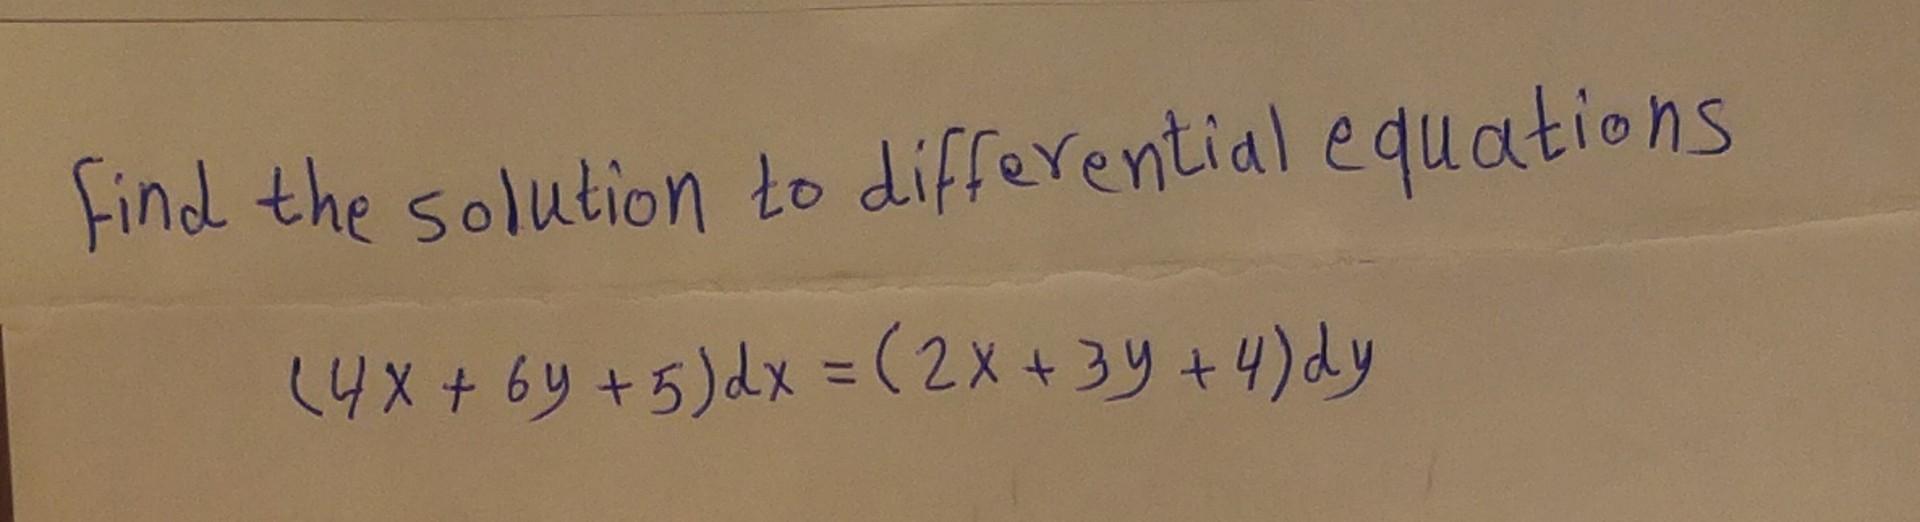 Find the solution to differential equations
(4x + 6y + 5)dx = (2x + 3y + 4)dy